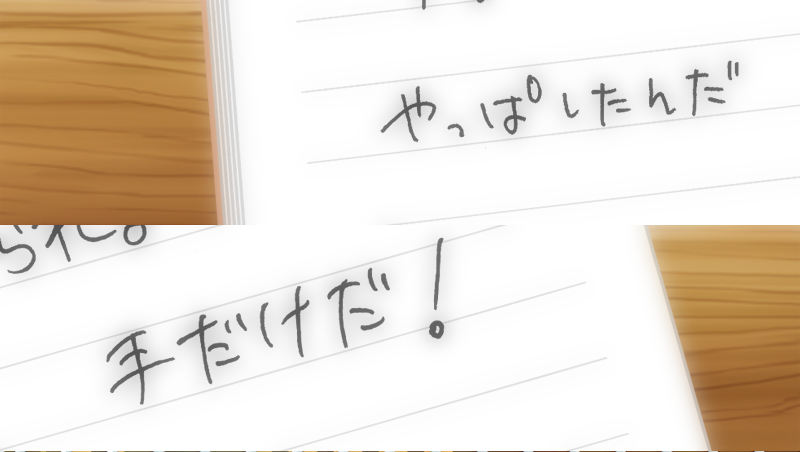 やっぱしたんだ
られ。
手だけだ!